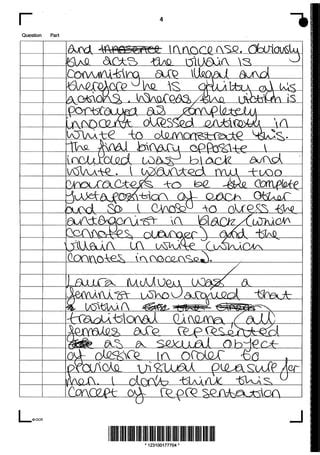 4
Question Part
and innocense. Obviously
the acts the villain is
commiting are illegal and
therefore he is guilty of his
actions. Whereas, the victim is
portrayed as completely
innocent dressed entirely in
white to demonstrate this.
The final binary opposite I
included was black and
white. I wanted my two
characters to be the complete
juxtaposition of each other
and so I chose to dress the
antagonist in black (which
connotes danger) and the
villain in white (which
connotes innocense).
Laura Mulvey was a
feminist who argued that
within
traditional cinema, all
females are represented
as a sexual object
of desire in order to
provide visual pleasure for
men. I don't think this
concept of representation